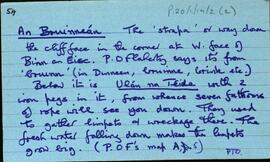 5A
P.20/1/14/2 (2)
An Bruinneán The 'strapa' or way down
the cliff face in the corner at W. face of
Binn an Éisc. P. O'Flaherty says its from
'bruinn' (in Dinneen, bruinne, brink etc.)
Below it is Ulán na Téide with 2
iron pegs in it, from whence seven fathoms
of rope will see you down. They used
to gather limpets & wreckage there. The
fresh water falling down makes the limpets
grow big. (P. O'F's map A, D.S)
PTO.